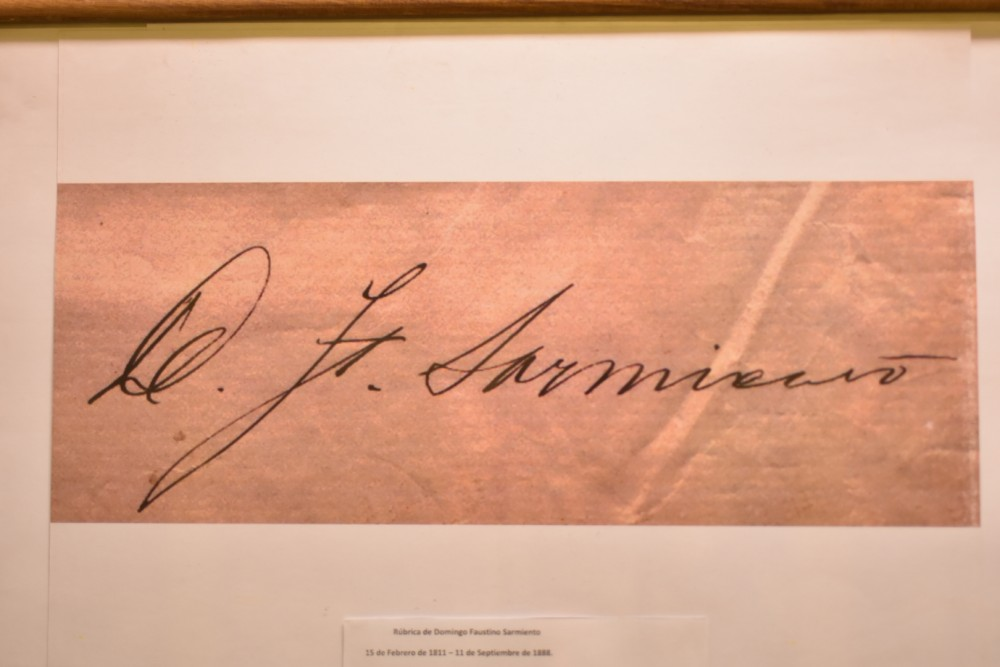 D. F. Sarmiento
Rúbrica de Domingo Faustino Sarmiento
15 de Febrero de 1811 – 11 de Septiembre de 1888.